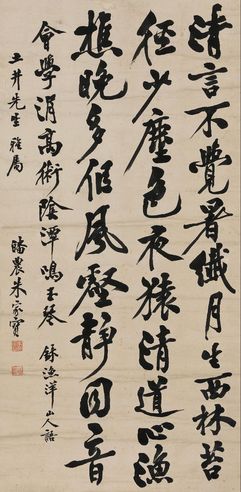 清言不覺暑纖月生西林苔
徑少塵色夜猿清道心漁
樵晚多侶風壑靜回音
會學涓高術陰潭鳴玉琴 錄漁洋山人語
井先生雅屬
農朱家寶